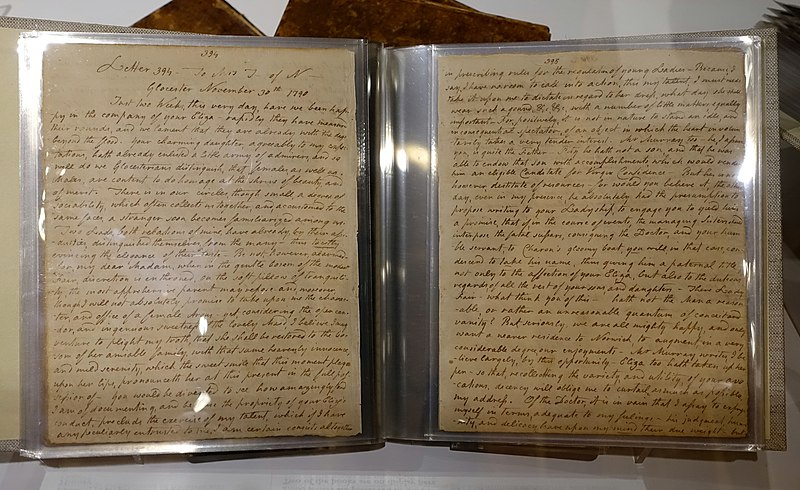 394
Letter 394 - To Mrs T. of N
Glocester November 30th 1790
Just two weeks, this very day, have we been hap-
py in the company of your Eliza - rapidly they have made
their rounds, and we lament that they are already with the days
beyond the flood. Your charming daughter, agreeably to my expec-
tations, hath already enlisted a little army of admirers, and so
well do we Glocesterians distinguish, that females, as well as
males, are content to do homage at the shrine of beauty, and
of merit. There is in our circle, though small, a degree of
sociability, which often collects us together, and accustomed to the
same faces, a stranger soon becomes familiarized among us.
Two Lads, both relations of mine, have already by their
distinguished themselves from the many - thus
evincing the of their taste. Be not however alarmed
for my dear Madam, when in the gentle bosom of the modest
Fair, discretion is enthroned, on the soft pillow of tranquili-
ty, the most apprehensive parent may repose and moreover
though I will not absolutely promise to take upon me the charac-
ter, and office of a female Argus, yet considering the open can-
dor, and ingenuous sweetness of the lovely Maid I believe I may
venture to plight my troth, that she shall be restored to the bo-
som of her amiable family, with that same heavenly innocence,
and mild serenity, which the sweet smile that this moment plays
upon her lips, pronounceth her at this present in the full pos-
session of. You would be diverted to see how amazingly fond
I am of documenting, and the propriety of your Eliza's
conduct, preclude the exercise of my talent, which if I have
any peculiarly entrusted to I am certain consists altogether
395
in prescribing rules for the regulation of young Ladies - Because I
say, I have no room to call into action, this my talent, I must needs
take it upon me to dictate in regard to her dress, what day she shall
wear such a gown, &c &c with a number of little matters equally
important. For, positively, it is not in nature to stand an idle and
inconsequential spectator, of an object in which the heart involun-
tarily takes a very tender interest. Mr Murray is, if possi-
ble, quite the Father. Pity he hath not a son, and that he was not
able to endow that son with accomplishments which would render
him an eligible Candidate for Virgin Confidence - But he is not
however, destitute of resources. For would you believe it, the other
day, even in my presence he absolutely had the presumption to
propose writing to your Ladyship to engage you to yield him
a promise, that if in the course of events, the managing Sisters should
interpose the fatal shears, consigning the Doctor, and your humble
servant, to Charon's gloomy boat, you will in that case, con-
descend to take his name, thus giving him a paternal title
not only to the affection of your Eliza, but also to the dutious
regards of all the rest of your sons and daughters - There
what think you of this - hath not the Man a reason-
able, or rather an unreasonable quantum of conceit and
vanity? But seriously, we are all mighty happy, and only
want a nearer residence to Norwich to augment, in a very
considerable degree our enjoyments - Mr Murray writes, I be-
lieve largely, by this opportunity - Eliza too hath taken up her
pen - so that recollecting the variety, and utility, of your avo-
cations, decency will oblige me to curtail as much as possible
my address. Of the Doctor, it is in vain that I essay to express
myself in terms, adequate to my feelings - his judgment,
and delicacy have upon my mind their due weight - but